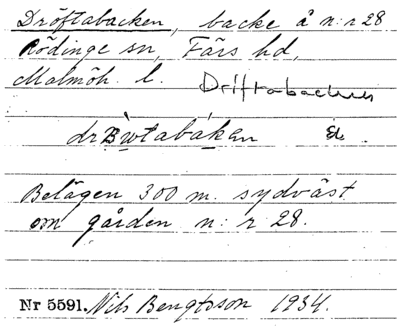 Dröftabacken, backe å n:r 28
Rödinge sn, Färs hd,
Malmöh. l.
Driftabacken
Belägen 300 m. sydväst
om gården n:r 28.
Nr 5591. Nils Bengtsson 1934.